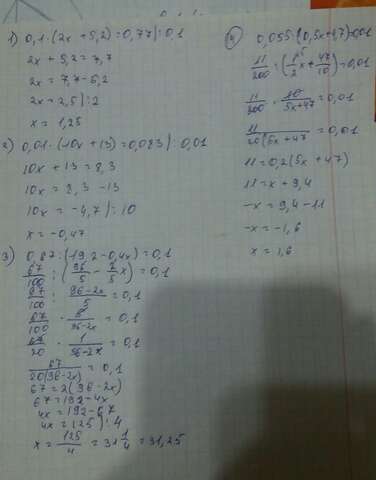 1) 0,1·(2x+5,2)=0,77):0,1
2x+5,2=7,7
2x=7,7-5,2
2x=2,5):2
x=1,25
2) 0,01·(10x+13)=0,083):0,01
10x+13=8,3
10x=8,3-13
10x=-4,7):10
x=-0,47
3) 0,67:(19,2-0,4x)=0,1
67/100:(96/5-2/5x)=0,1
67/100:96-2x/5=0,1
67/100·5/96-2x=0,1
67/20·1/96-2x=0,1
67/20(96-2x)=0,1
67=2(96-2x)
67=192-4x
4x=192-67
4x=125):4
x=125/4=31 1/4=31,25
4) 0,055:(0,5x+4,7)=0,01
11/200:(1/2x+47/10)=0,01
11/200·10/5x+47=0,01
11/20(5x+47)=0,01
11=0,2(5x+47)
11=x+9,4
-x=9,4-11
-x=-1,6
x=1,6